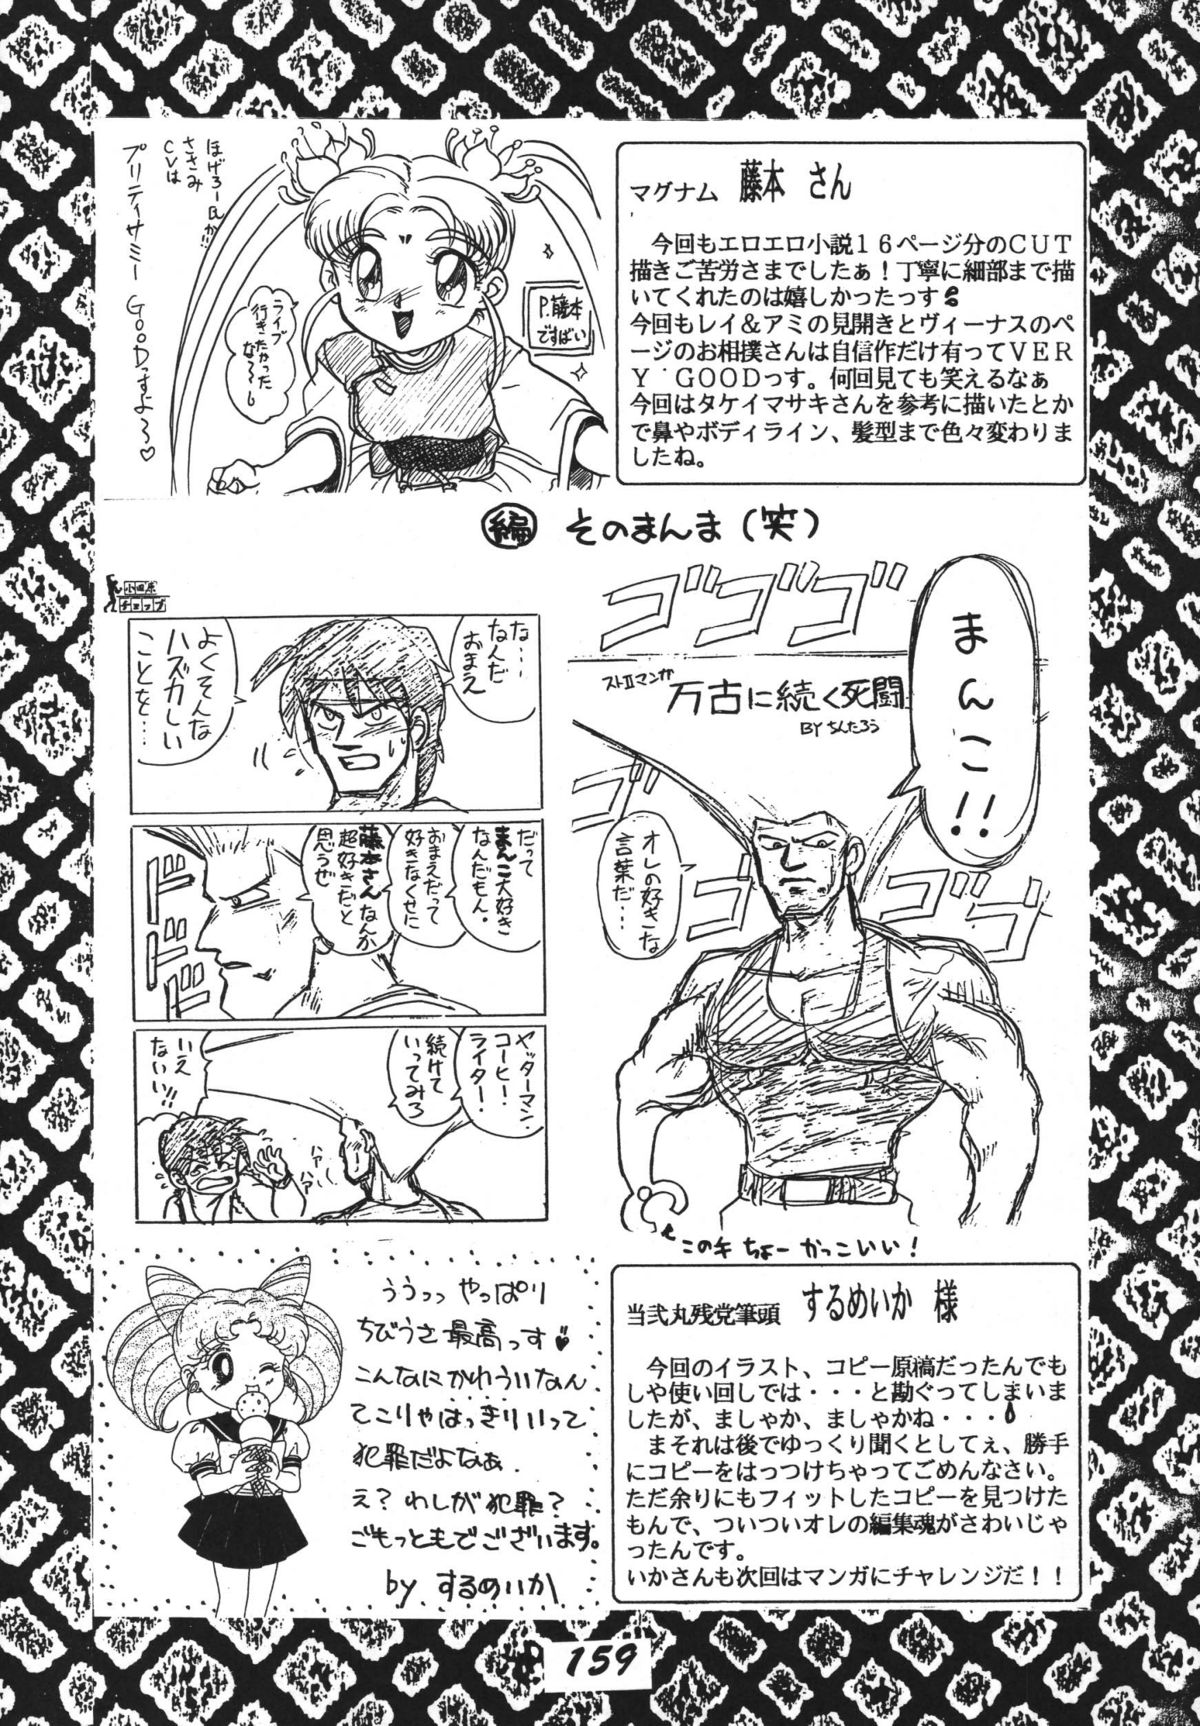 ほげろー氏が!!
ささみ
CVは
プリティサミー GOODっすよ〜♡
ライブ
行きたかった
な〜〜し
P.藤本
ですばい
マグナム 藤本 さん
今回もエロエロ小説16ページ分のCUT
描きご苦労さまでしたぁ!丁寧に細部まで描
いてくれたのは嬉しかったっす
今回もレイ&アミの見開きとヴィーナスのペ
ージのお相撲さんは自信作だけ有ってVER
Y GOODっす。何回見ても笑えるなぁ
今回はタケイマサキさんを参考に描いたとか
で鼻やボディライン、髪型まで色々変わりま
したね。
編 そのまんま(笑)
ゴゴゴゴ
ストⅡマンガ
万古に続く死闘
BY ちんたろう
まんこ!!
オレの好きな
言葉だ…
ゴゴ
ゴゴゴ
この手 ちょー かっこいい!
小田原
チョップ
な…
なんだ
おまえ
よくそんな
ハズカしい
ことを…
だって
まんこ大好き
なんだもん。
おまえだって
好きなくせに
藤本さんなんか
超好きだと
思うぜ
ドドド
ヤッターマン
コーヒー・
ライター・
続けて
いってみろ
いえ
ないい!!
ううっっ やっぱり
ちびうさ最高っす
こんなにかわういなん
てこりゃはっきりいって
犯罪だよなぁ
え?わしが犯罪?
ごもっともでございます。
by するめいか
当弐丸残党筆頭 するめいか 様
今回のイラスト、コピー原稿だったんでも
しや使い回しでは・・・と勘ぐってしまいま
したが、ましゃか、ましゃかね・・・
まそれは後でゆっくり聞くとしてぇ、勝手
にコピーをはっつけちゃってごめんなさい。
ただ余りにもフィットしたコピーを見つけた
もんで、ついついオレの編集魂がさわいじゃ
ったんです。
いかさんも次回はマンガにチャレンジだ!!
159